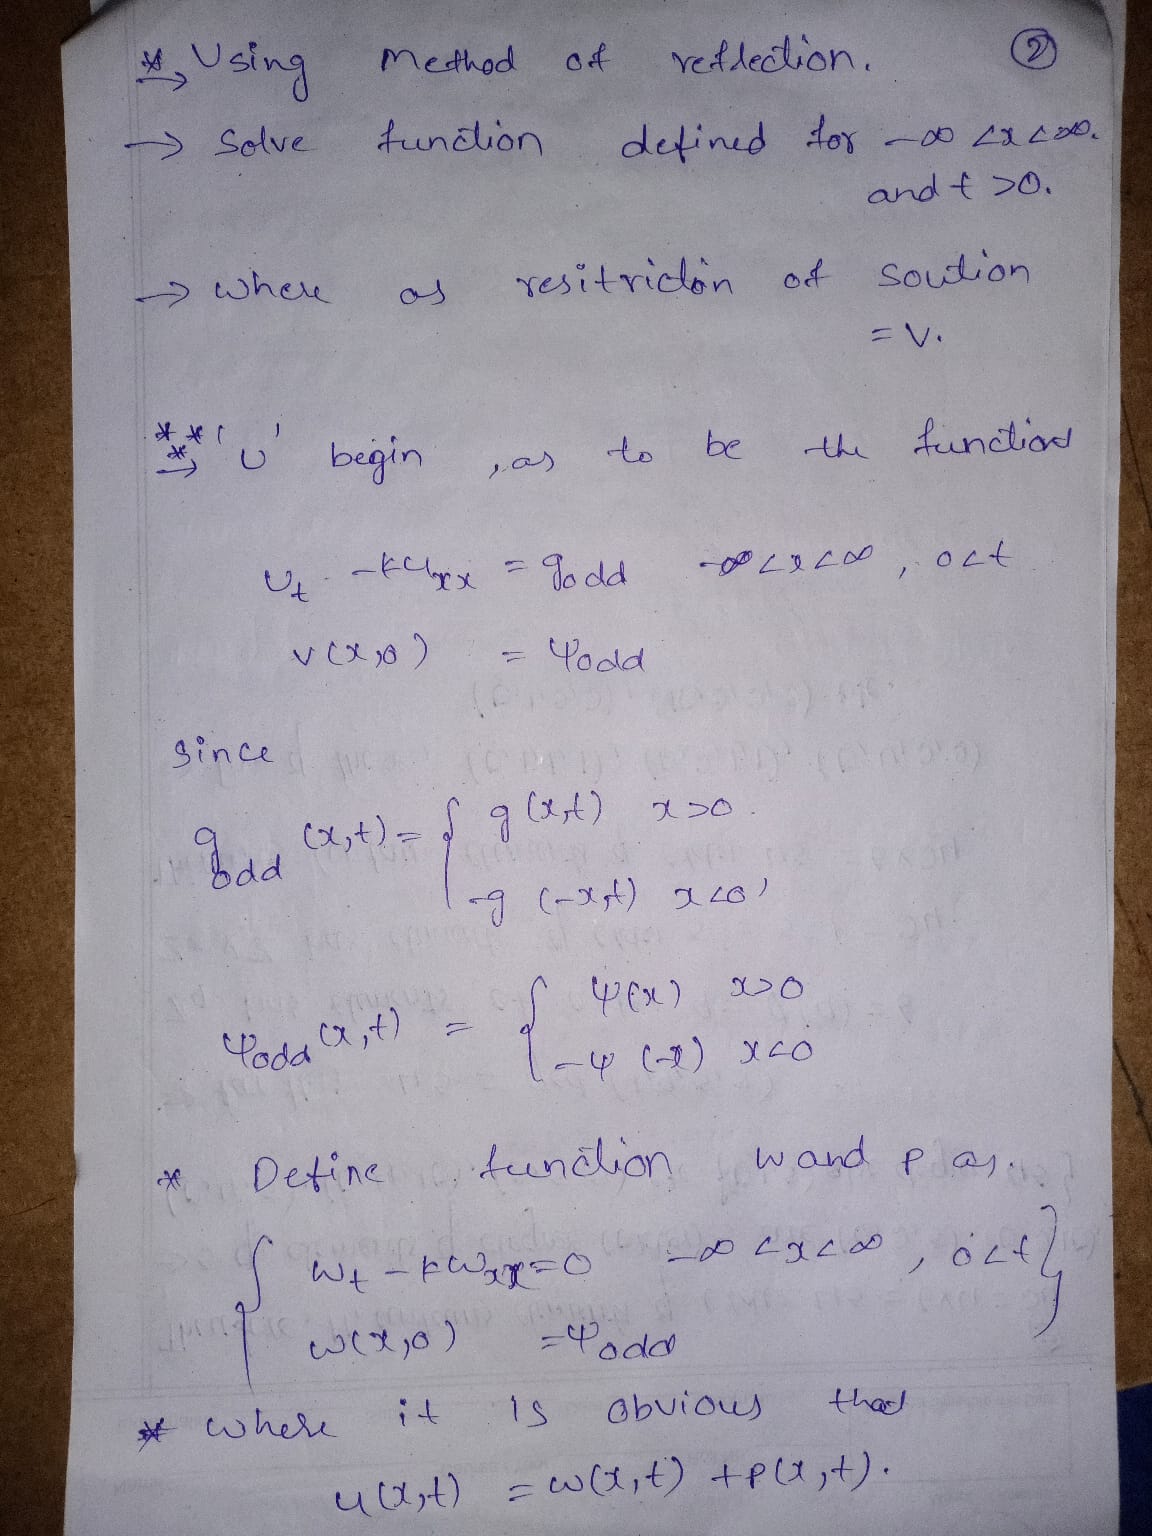 * Using method of reflection. ②
→ Solve function defined for -∞ <x<∞.
and t >0.
→ where as resitriction of soution
= V.
*** 'U' begin , as to be the function
U_t - kU_xx = g_odd -∞ <x<∞ , 0<t
v(x,0) = ψ_odd
Since
g_odd (x,t) = { g(x,t) x>0.
-g (-x,t) x<0
ψ_odd (x,t) = { ψ(x) x>0
-ψ (-x) x<0
* Define function w and p as.
{ w_t - kw_xx=0 -∞ <x<∞ , 0<t }
w(x,0) =ψ_odd
* where it is obvious that
u(x,t) = w(x,t) +p(x,t).